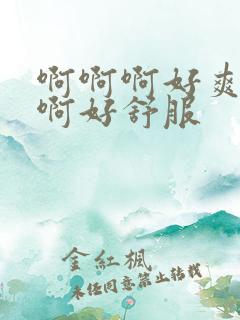 啊啊啊好爽
啊好舒服
金紅楓
未经同意禁止转载